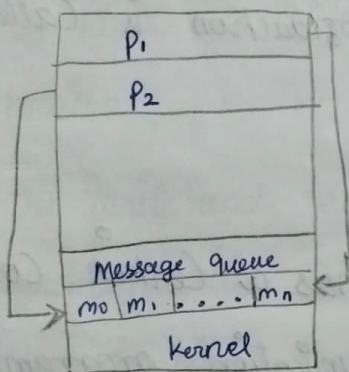 P1
P2
Message queue
m0 m1 .... mn
Kernel